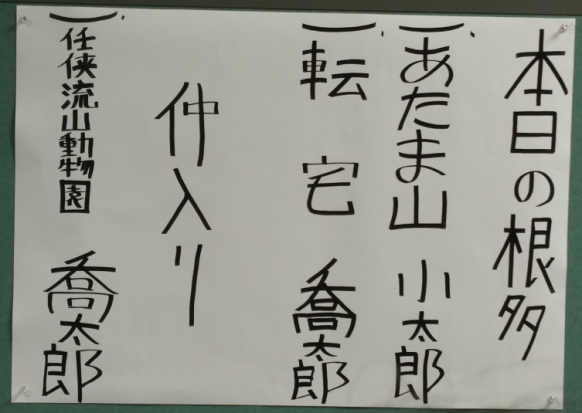 本日の根多
一、あたま山 小太郎
一、転宅 喬太郎
仲入り
一、任侠流山動物園 喬太郎